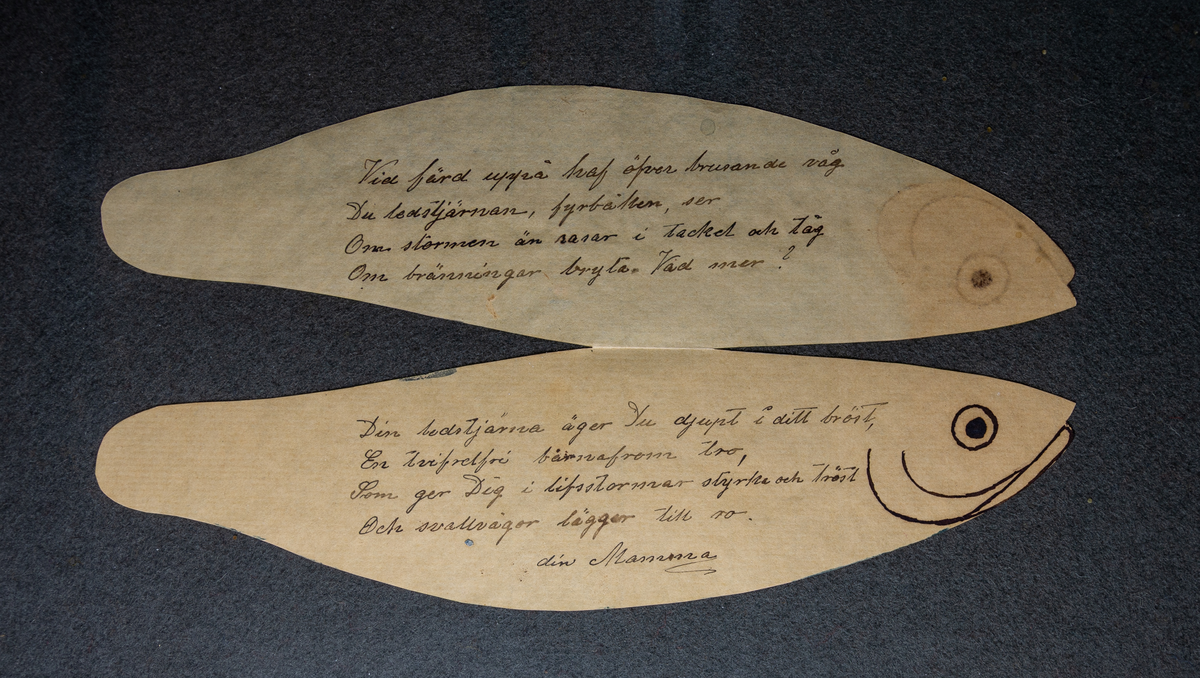 Vid färd uppå haf öfver brusande våg
Du ledstjärnan, fyrbåken, ser
Om stormen än rasar i tackel och tåg
Om bränningar bryta. Vad mer?
Din ledstjärna äger Du djupt i ditt bröst,
En tvifvelfri barnafrom tro,
Som ger Dig i lifsstormar styrka och tröst
Och svallvågor lägger till ro.
din Mamma